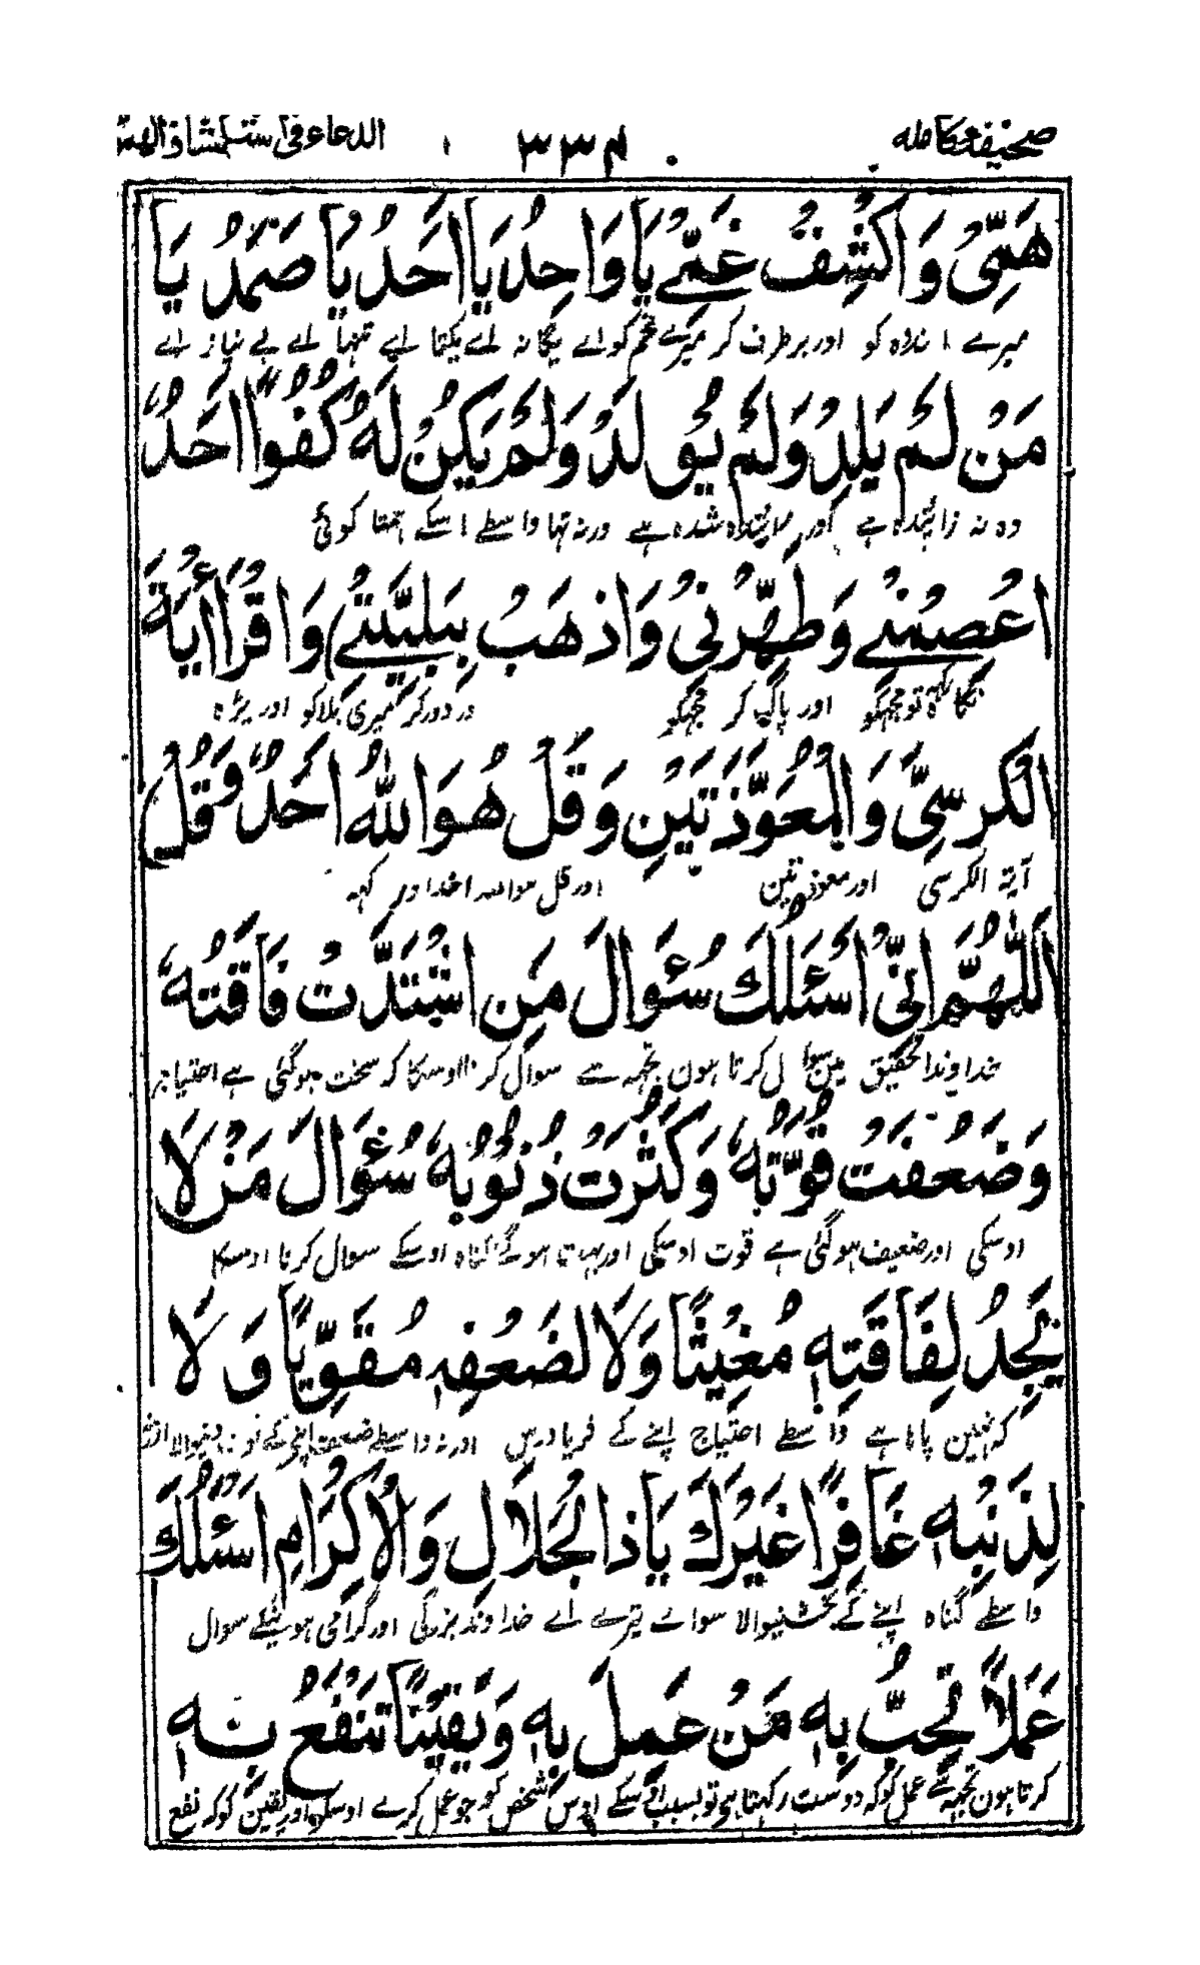 صحیفهٔ کامله ٣٣٤ الدعاء فی استکشاف الهم
هَمِّیْ وَاکْشِفْ غَمِّیْ یَا وَاحِدُ یَا اَحَدُ یَا صَمَدُ یَا
میرے اندوہ کو اور برطرف کر میرے غم کو اے یگانہ اے یکتا اے تنہا اے بے نیاز اے
مَنْ لَمْ یَلِدْ وَلَمْ یُوْلَدْ وَلَمْ یَکُنْ لَهٗ کُفُوًا اَحَدٌ
وہ نہ زائیدہ ہے اور نہ شدہ ہے ورنہ تھا واسطے اسکے ہمتا کوئی
اعْصِمْنِیْ وَطَهِّرْنِیْ وَاذْهَبْ بِبَلِیَّتِیْ وَاقْرَأْ اٰیَةَ
نگاہ رکھ تو مجھکو اور پاک کر مجھکو ور دور کر میری بلا کو اور پڑہ
الْکُرْسِیِّ وَالْمُعَوِّذَتَیْنِ وَقُلْ هُوَ اللّٰهُ اَحَدٌ وَقُلْ
آیة الکرسی اور معوذتین اور قل ہو اللہ احد اور کہہ
اَللّٰهُمَّ اِنِّیْ اَسْئَلُكَ سُؤَالَ مَنِ اشْتَدَّتْ فَاقَتُهٗ
خداوندا تحقیق مین سوال کرتا ہون تجھ سے سوال کرنا اوسکا کہ سخت ہوگئی ہے احتیاج
وَضَعُفَتْ قُوَّتُهٗ وَکَثُرَتْ ذُنُوْبُهٗ سُؤَالَ مَنْ لَا
اوسکی اور ضعیف ہوگئی ہے قوت اوسکی اور بہت ہوگئے گناہ اوسکے سوال کرنا اوسکا
یَجِدُ لِفَاقَتِهٖ مُغِیْثًا وَلَا لِضَعْفِهٖ مُقَوِّیًا وَلَا
کہ نہین پاتا ہے واسطے احتیاج اپنے کے فریادرس اور نہ واسطے ضعف اپنے کے
لِذَنْبِهٖ غَافِرًا غَیْرَكَ یَا ذَا الْجَلَالِ وَالْاِکْرَامِ اَسْئَلُكَ
واسطے گناہ اپنے کے بخشنیوالا سواے تیرے اے خداوند بزرگی اور گرامی ہونیکے سوال
عَمَلًا تُحِبُّ بِهٖ مَنْ عَمِلَ بِهٖ وَیَقِیْنًا تَنْفَعُ بِهٖ
کرتا ہون تجھ سے عمل کو کہ دوست رکھتا ہی تو بسبب اسکے اوس شخص کو جو عمل کرے اوسکو اور یقین کو کہ نفع